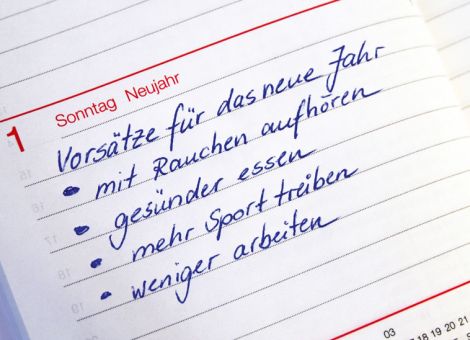 Sonntag Neujahr
1
Vorsätze für das neue Jahr
• mit Rauchen aufhören
• gesünder essen
• mehr Sport treiben
• weniger arbeiten
03